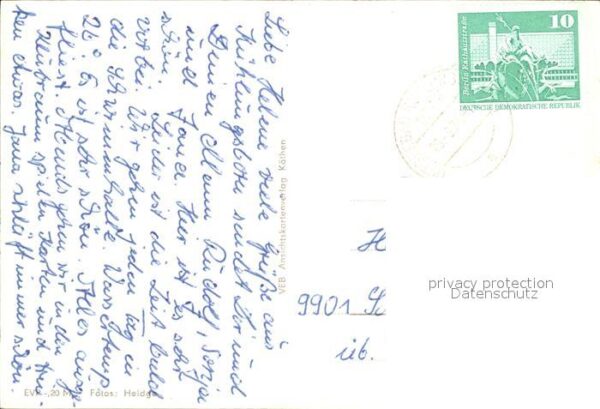 Liebe Helene viele Grüße aus
Kühlungsborn sendet Dir und
Deinen Mann Rudolf, Sonja
und Jana. Hier ist es sehr
schön. Leider ist die Zeit bald
vorbei. Wir gehen jeden Tag in
die Schwimmhalle. Wassertemp.
26° Es ist sehr schön. Alles ausge-
fliest. Abends gehen wir in den
Klubraum spielen Karten und trin-
ken etwas. Jana schläft immer schön.
VEB Ansichtskartenverlag Köthen
EVP -,20 M Fotos:
10
Berlin, Rathausstraße
DEUTSCHE DEMOKRATISCHE REPUBLIK
H
9901
üb.
privacy protection
Datenschutz